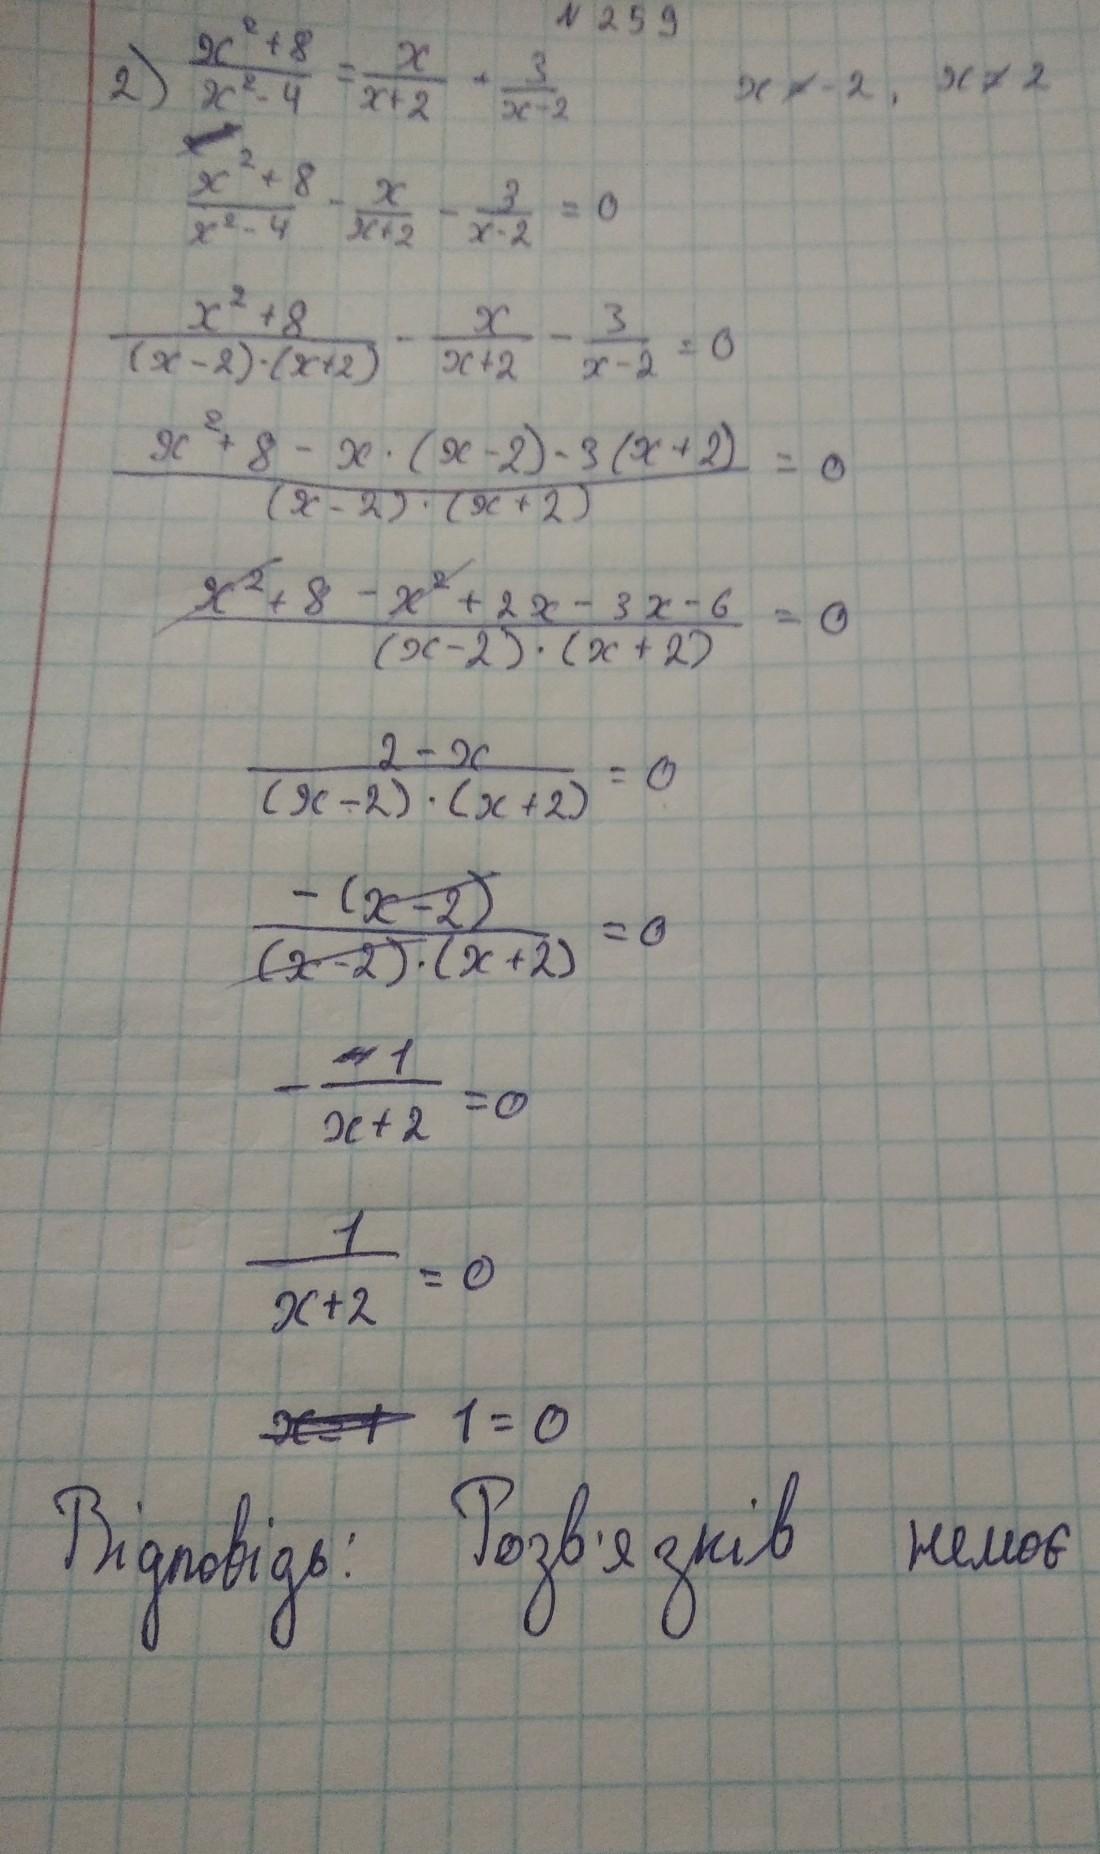 N 259
2) \frac{x^2+8}{x^2-4} = \frac{x}{x+2} + \frac{3}{x-2} x ≠ -2, x ≠ 2
\frac{x^2+8}{x^2-4} - \frac{x}{x+2} - \frac{3}{x-2} = 0
\frac{x^2+8}{(x-2)·(x+2)} - \frac{x}{x+2} - \frac{3}{x-2} = 0
\frac{x^2+8-x·(x-2)-3(x+2)}{(x-2)·(x+2)} = 0
\frac{x^2+8-x^2+2x-3x-6}{(x-2)·(x+2)} = 0
\frac{2-x}{(x-2)·(x+2)} = 0
\frac{-(x-2)}{(x-2)·(x+2)} = 0
-\frac{1}{x+2} = 0
\frac{1}{x+2} = 0
1 = 0
Відповідь: Розв'язків немає